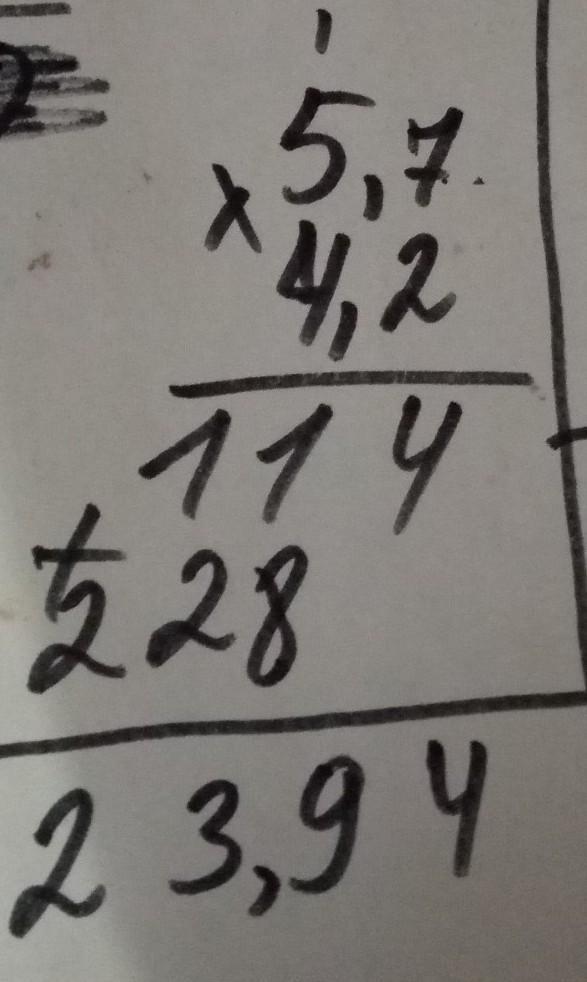 1
5,7
× 4,2
114
+ 228
23,94